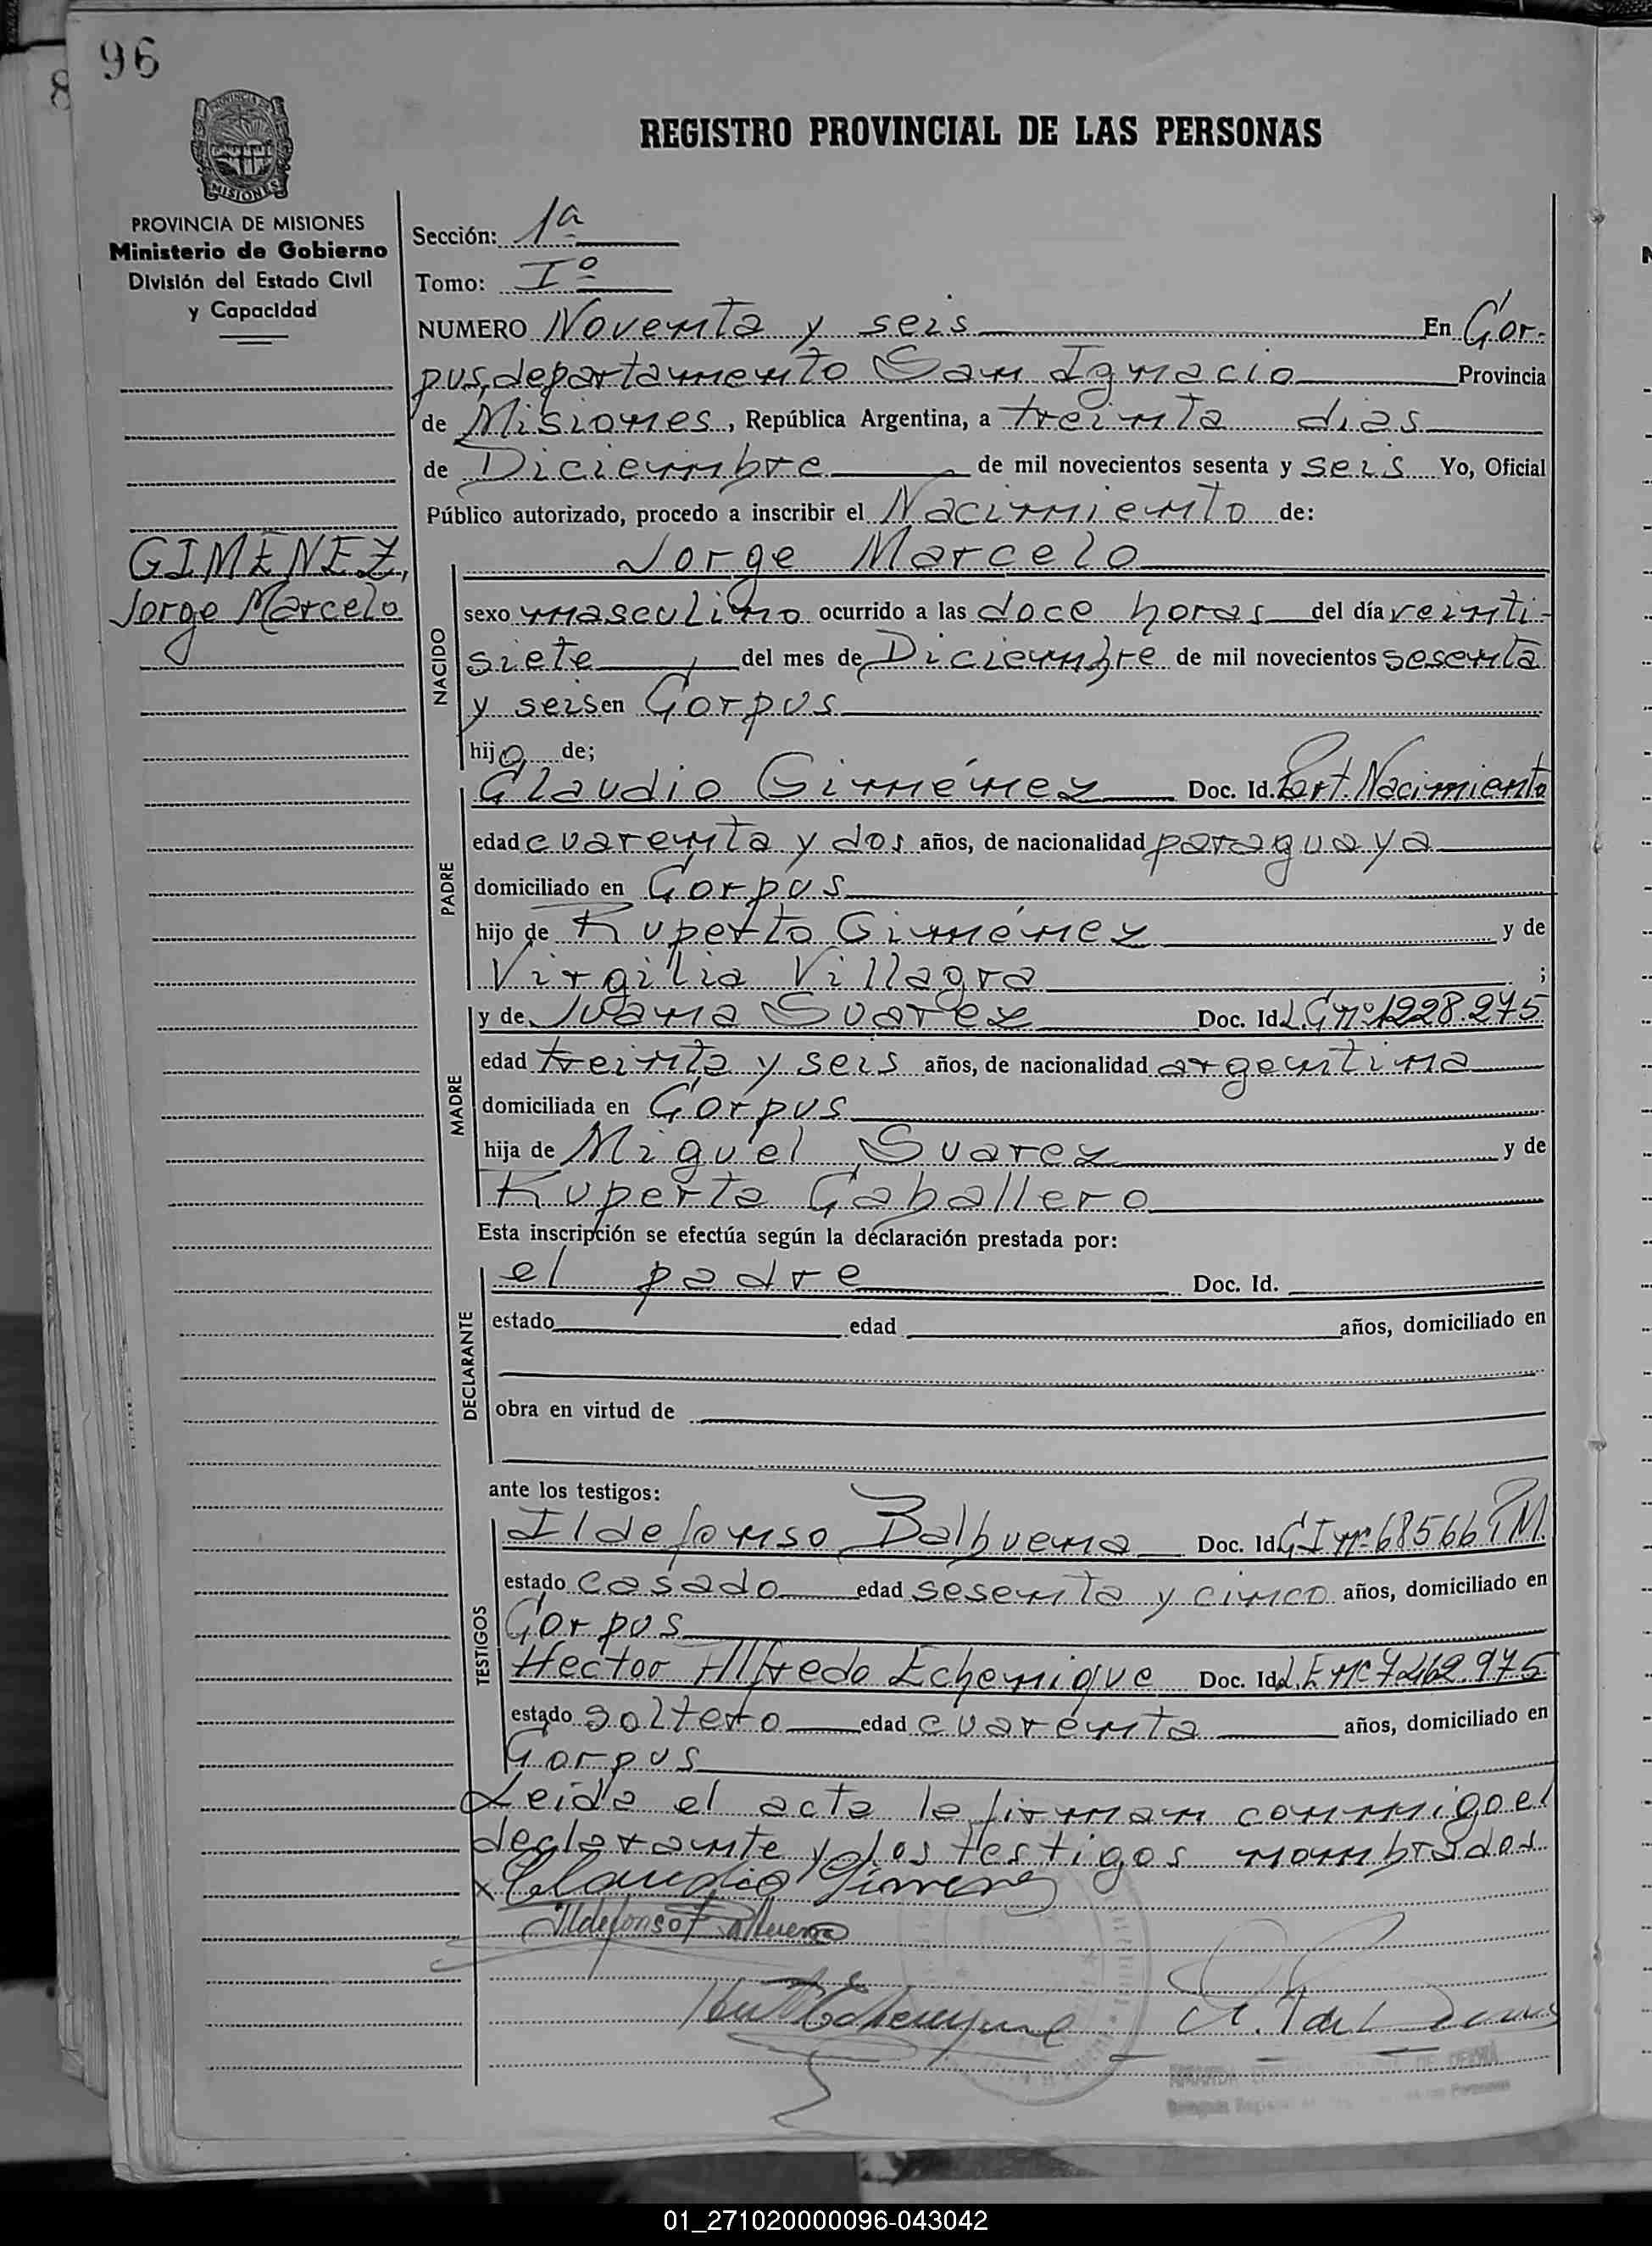 96
8
REGISTRO PROVINCIAL DE LAS PERSONAS
PROVINCIA DE MISIONES
Ministerio de Gobierno
División del Estado Civil
y Capacidad
Sección: 1ª
Tomo: Iº
NUMERO Noventa y seis En Cor-
pus, departamento San Ignacio Provincia
de Misiones, República Argentina, a treinta dias
de Diciembre de mil novecientos sesenta y seis Yo, Oficial
Público autorizado, procedo a inscribir el Nacimiento de:
GIMENEZ,
Jorge Marcelo
NACIDO
Jorge Marcelo
sexo masculino ocurrido a las doce horas del día veinti-
siete del mes de Diciembre de mil novecientos sesenta
y seis en Corpus
hijo de;
PADRE
Claudio Giménez Doc. Id. Part. Nacimiento
edad cuarenta y dos años, de nacionalidad paraguaya
domiciliado en Corpus
hijo de Ruperto Giménez y de
Virgilia Villagra ;
MADRE
y de Juana Suarez Doc. Id. L.C nº 1228.275
edad treinta y seis años, de nacionalidad argentina
domiciliada en Corpus
hija de Miguel Suarez y de
Ruperta Caballero
Esta inscripción se efectúa según la declaración prestada por:
DECLARANTE
el padre Doc. Id.
estado edad años, domiciliado en
obra en virtud de
ante los testigos:
TESTIGOS
Ildefonso Balbuena Doc. Id. C I nº 68566 P.M.
estado casado edad sesenta y cinco años, domiciliado en
Corpus
Hector Alfredo Echenique Doc. Id. L.E nº 7.462.975
estado soltero edad cuarenta años, domiciliado en
Corpus
Leida el acta la firman conmigo el
declarante y los testigos nombrados
x Claudio Gimenez
Ildefonso Balbuena
Echenique
01_271020000096-043042